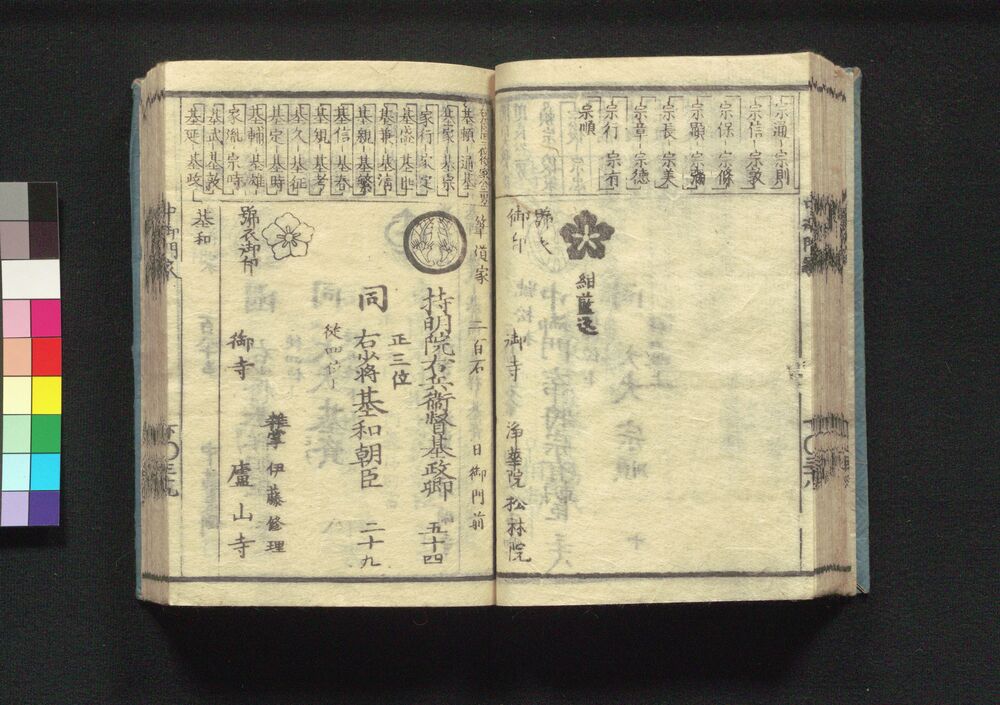 宗通 宗則
宗信 宗敦
宗保 宗條
宗顕 宗彌
宗長 宗美
宗章 宗德
宗行 宗有
宗順
紺藍
御印
御寺 浄華院 松林院
基頼 通基
基宗
家行 家定
基盛
基兼 基清
基親 基繁
基信 基春
基規 基孝
基久 基征
基定 基時
基輔 基雄
家胤 宗時
基武 基敦
基延 基政
筆道家 二百石 日御門前
持明院右兵衛督基政卿 五十四
正三位
同 右少将基和朝臣 二十九
従四位上
雑掌 伊藤修理
御寺 盧山寺
基和
中御門家
三十九